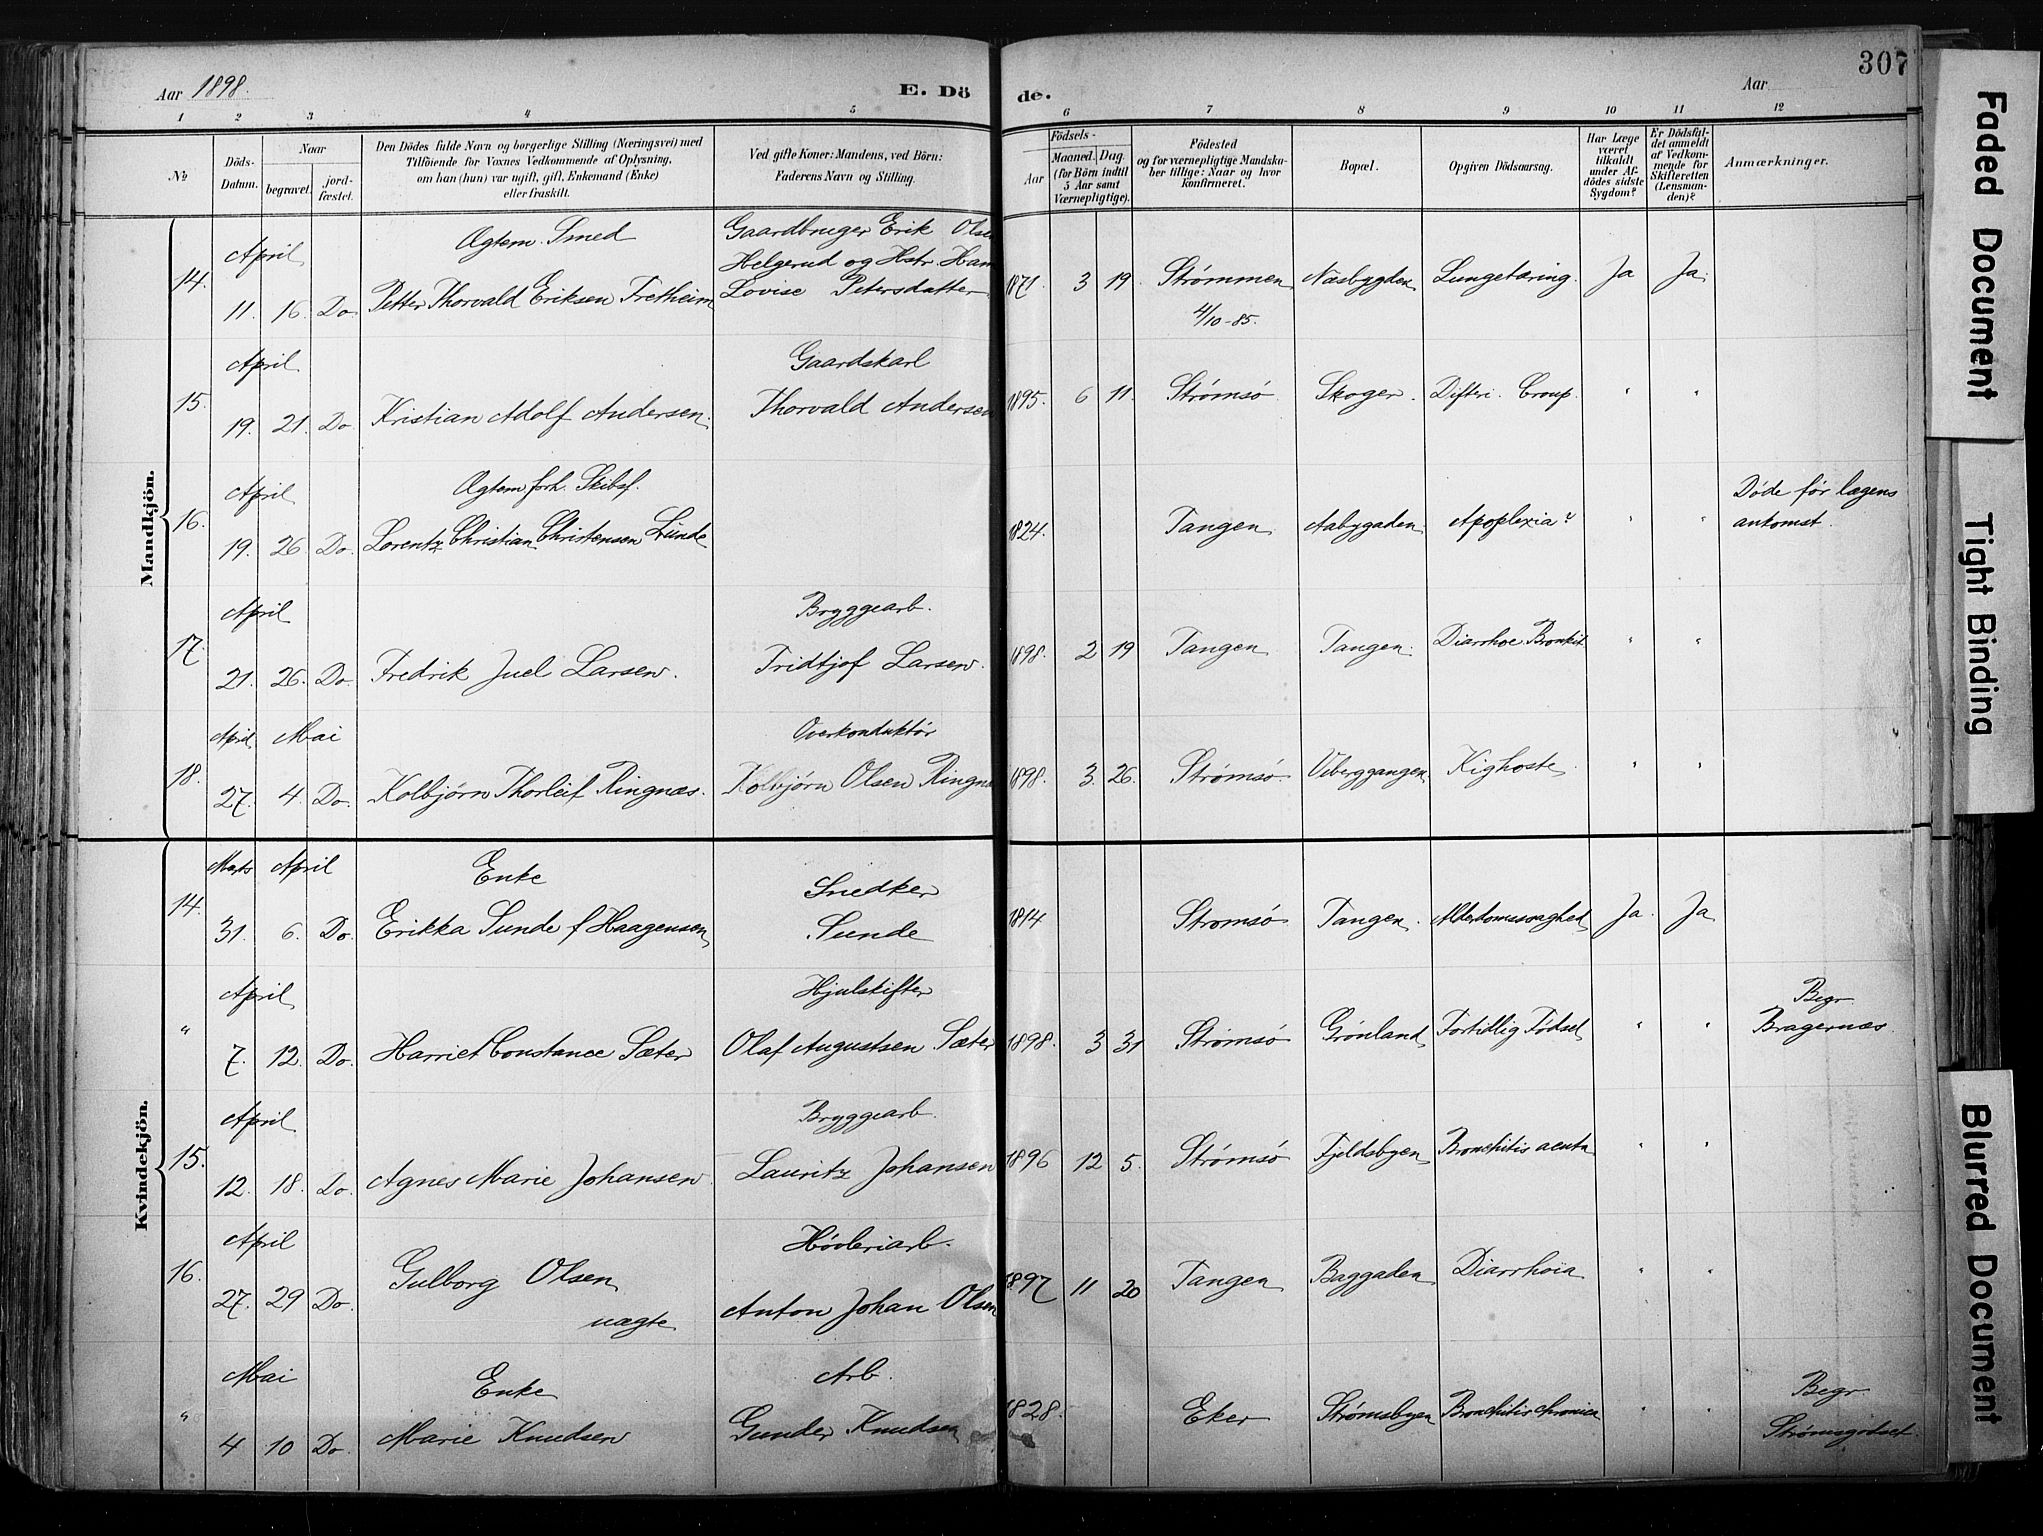 307
Aar 1898.
E. Dö
de.
Aar
1 2 3 4 5 6 7 8 9 10 11 12
No
Döds-
Datum.
Naar
begravet.
jord-
fæstet.
Den Dödes fulde Navn og borgerlige Stilling (Næringsvei) med
Tilföiende for Voxnes Vedkommende af Oplysning,
om han (hun) var ugift, gift, Enkemand (Enke)
eller fraskilt.
Ved gifte Koner: Mandens, ved Börn:
Faderens Navn og Stilling.
Födsels-
Aar
Maaned. Dag.
(for Börn indtil
5 Aar samt
Værnepligtige).
Födested
og for værnepligtige Mandska-
ber tillige: Naar og hvor
konfirmeret.
Bopæl.
Opgiven Dödsaarsag.
Har Læge
været
tilkaldt
under Af-
dödes sidste
Sygdom?
Er Dödsfal-
det anmeldt
af Vedkom-
mende for
Skifteretten
(Lensman-
den)?
Anmærkninger.
Mandkjön.
April Ægtem. Smed Gaardbruger Erik Olsen
Helgerud og Hstr.
14. 11. 16. Do. Petter Thorvald Eriksen Fretheim Lovise Petersdatter 1871. 3 19. Strømmen Næsbygden Lungetæring. Ja Ja.
4/10-85.
April Gaardskarl
15. 19. 21. Do Kristian Adolf Andersen Thorvald Andersen 1895. 6 11. Strømsø. Skoger. Difteri. Croup. " "
April Ægtem. forh. Skibsf. Døde før lægens
16. 19. 26. Do. Lorentz Christian Christensen Lunde 1824. Tangen Aabygaden Apoplexia? " " ankomst.
April Bryggearb.
17. 21. 26. Do. Fredrik Juel Larsen. Fridtjof Larsen. 1898. 2 19 Tangen Tangen. Diarrhoe Bronkit " "
April Mai Overkonduktør
18. 27. 4. Do. Kolbjørn Thorleif Ringnæs. Kolbjørn Olsen Ringnæs 1898. 3. 26. Strømsø Viberggangen Kighoste " "
Kvindekjön.
Marts April Enke Snedker
14. 31. 6. Do. Erikka Sunde f Haagensen Sunde 1814 Strømsø Tangen. Alderdomssvaghed Ja. Ja
April Hjulskifter Begr.
" 7. 12. Do. Harriet Constance Sæter Olaf Augustsen Sæter 1898. 3 31 Strømsø Grønland Fortidlig Fødsel " " Bragernæs.
April Bryggearb.
15. 12. 18. Do. Agnes Marie Johansen Lauritz Johansen 1896 12 5. Strømsø Fjeldsbyen Bronchitis acuta " "
April Høvleriarb.
16. 27. 29 Do. Gulborg Olsen uægte Anton Johan Olsen 1897 11 20 Tangen Baggaden Diarrhoia " "
Mai Enke Arb. Begr.
" 4 10 Do. Marie Knudsen Gunder Knudsen 1828. Eker Strømsbyen Bronchitis chronica " " Strømsgodset.
Faded Document
Tight Binding
Blurred Document